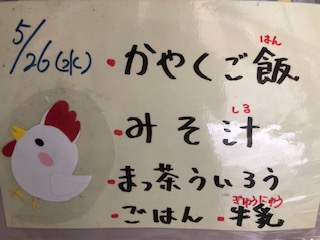 5/26(水)
・かやくご飯
はん
・みそ汁
しる
・まっ茶ういろう
・ごはん ・牛乳
ぎゅうにゅう